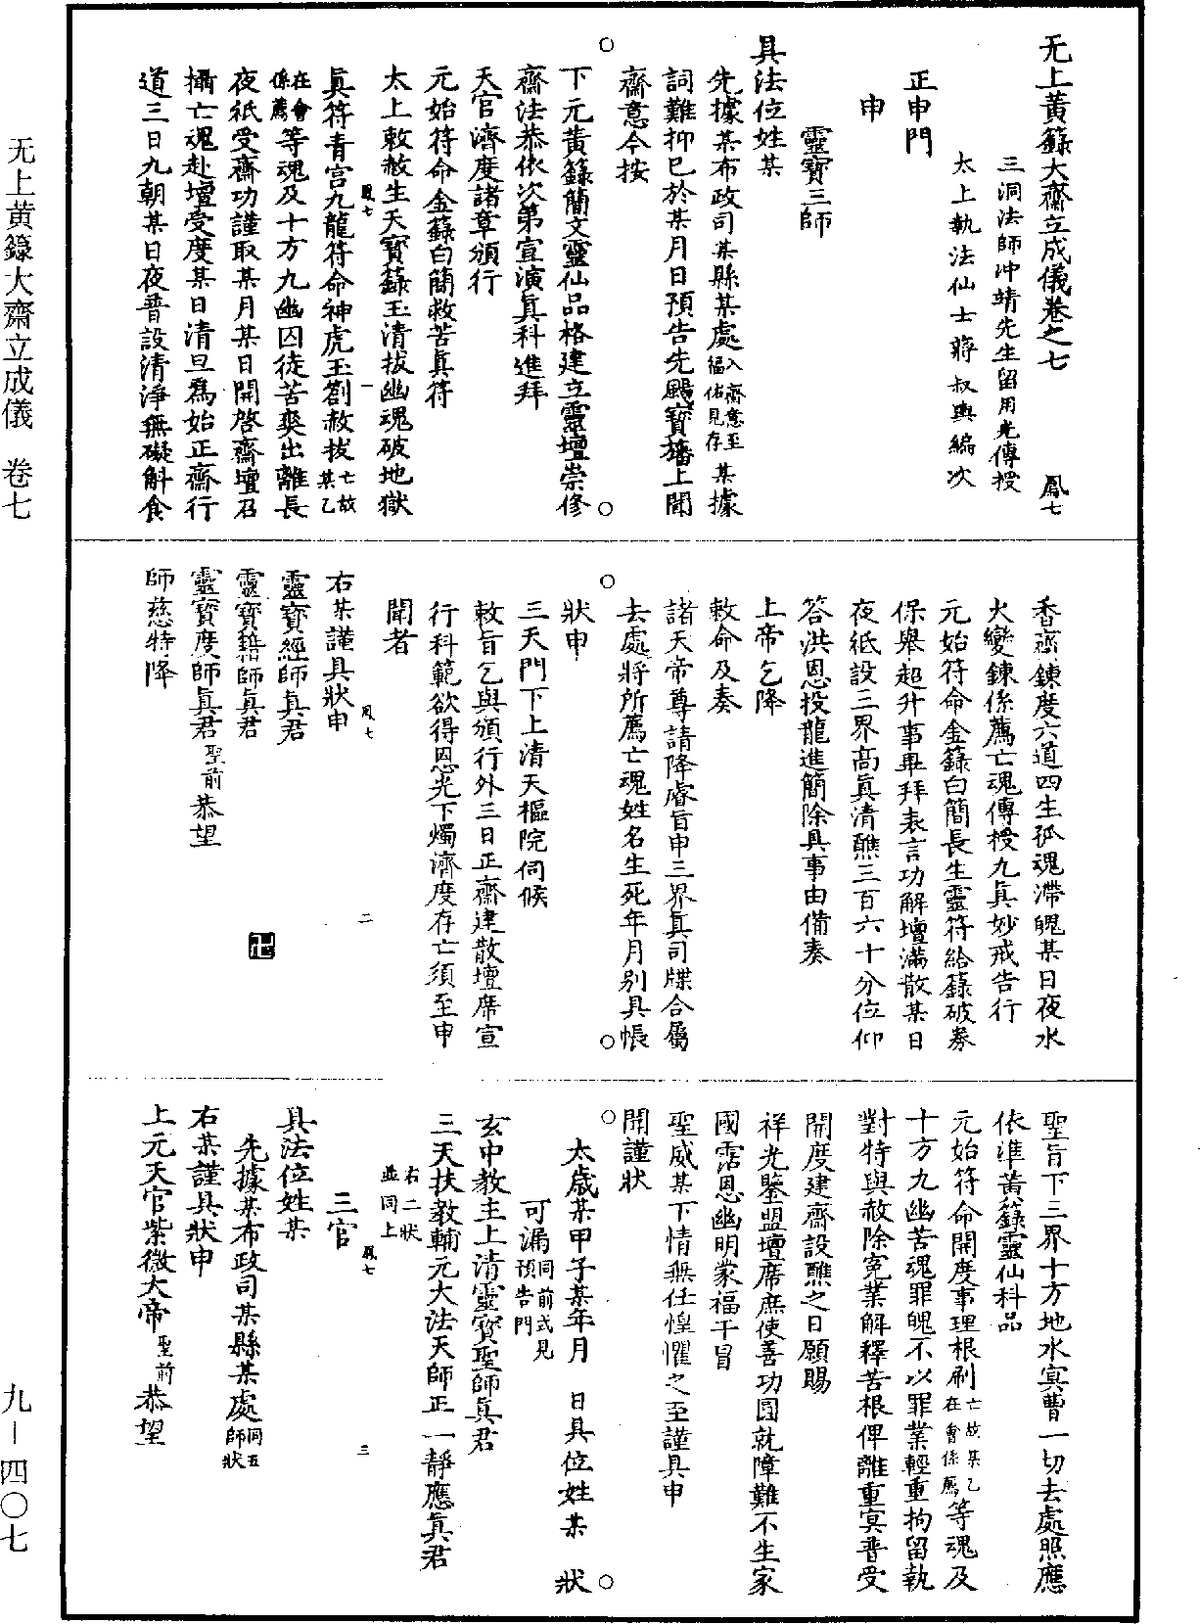 无上黃籙大齋立成儀卷之七　鳳七
三洞法師冲靖先生留用光傳授
太上執法仙士蔣叔輿編次
正申門
申
靈寶三師
具法位姓某
先據某布政司某縣某處入齋意至福佑見存某據
詞難抑已於某月日預告先颺寶旛上聞
齋意今按
下元黃籙簡文靈仙品格建立靈壇崇修
齋法恭依次第宣演眞科進拜
天官濟度諸章頒行
元始符命金籙白簡救苦眞符
太上敕赦生天寶籙玉清拔幽魂破地獄
鳳七　一
眞符青宮九龍符命神虎玉劄赦拔亡故某乙
在會係薦等魂及十方九幽囚徒苦爽出離長
夜祇受齋功謹取某月某日開啓齋壇召
攝亡魂赴壇受度某日清旦爲始正齋行
道三日九朝某日夜普設清淨無礙斛食
香齋鍊度六道四生孤魂滯魄某日夜水
火變鍊係薦亡魂傳授九眞妙戒告行
元始符命金籙白簡長生靈符給籙破券
保舉超升事畢拜表言功解壇滿散某日
夜祇設三界高眞清醮三百六十分位仰
答洪恩投龍進簡除具事由備奏
上帝乞降
敕命及奏
諸天帝尊請降睿旨申三界眞司牒合屬
去處將所薦亡魂姓名生死年月别具帳
狀申
三天門下上清天樞院伺候
敕旨乞與頒行外三日正齋建散壇席宣
行科範欲得恩光下燭濟度存亡須至申
聞者
鳳七　二
右某謹具狀申
靈寶經師眞君
靈寶籍師眞君
靈寶度師眞君聖前恭望
師慈特降
聖旨下三界十方地水冥曹一切去處照應
依準黃籙靈仙科品
元始符命開度事理根刷亡故某乙在會係薦等魂及
十方九幽苦魂罪魄不以罪業輕重拘留執
對特與赦除寃業解釋苦根俾離重冥普受
開度建齋設醮之日願賜
祥光鑒盟壇席庶使善功圓就障難不生家
國霑恩幽明蒙福干冒
聖威某下情無任惶懼之至謹具申
聞謹狀
太歲某甲子某年月　日具位姓某　狀
可漏同前式見預告門
玄中教主上清靈寶聖師眞君
三天扶教輔元大法天師正一靜應眞君
右二狀並同上
鳳七　三
三官
具法位姓某
先據某布政司某縣某處同五師狀
右某謹具狀申
上元天官紫微大帝聖前恭望
无上黃籙大齋立成儀　卷七
九－四〇七
卍